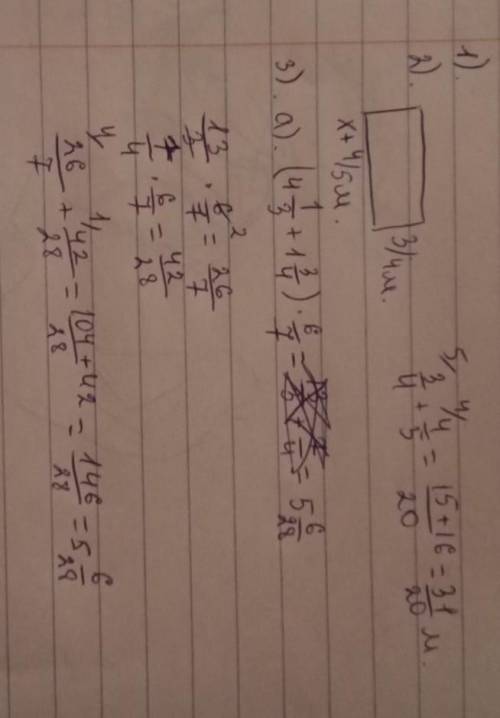 1).
2). 3/4 м. 5/ 3/4 + 4/ 4/5 = 15+16/20 = 31/20 м.
x+4/5 м.
3). а). (4 1/3 + 1 3/4) · 6/7 = = 5 6/28
13/3 · 6/7 2 = 26/7
7/4 · 6/7 = 42/28
4/ 26/7 + 1/ 42/28 = 104+42/28 = 146/28 = 5 6/28